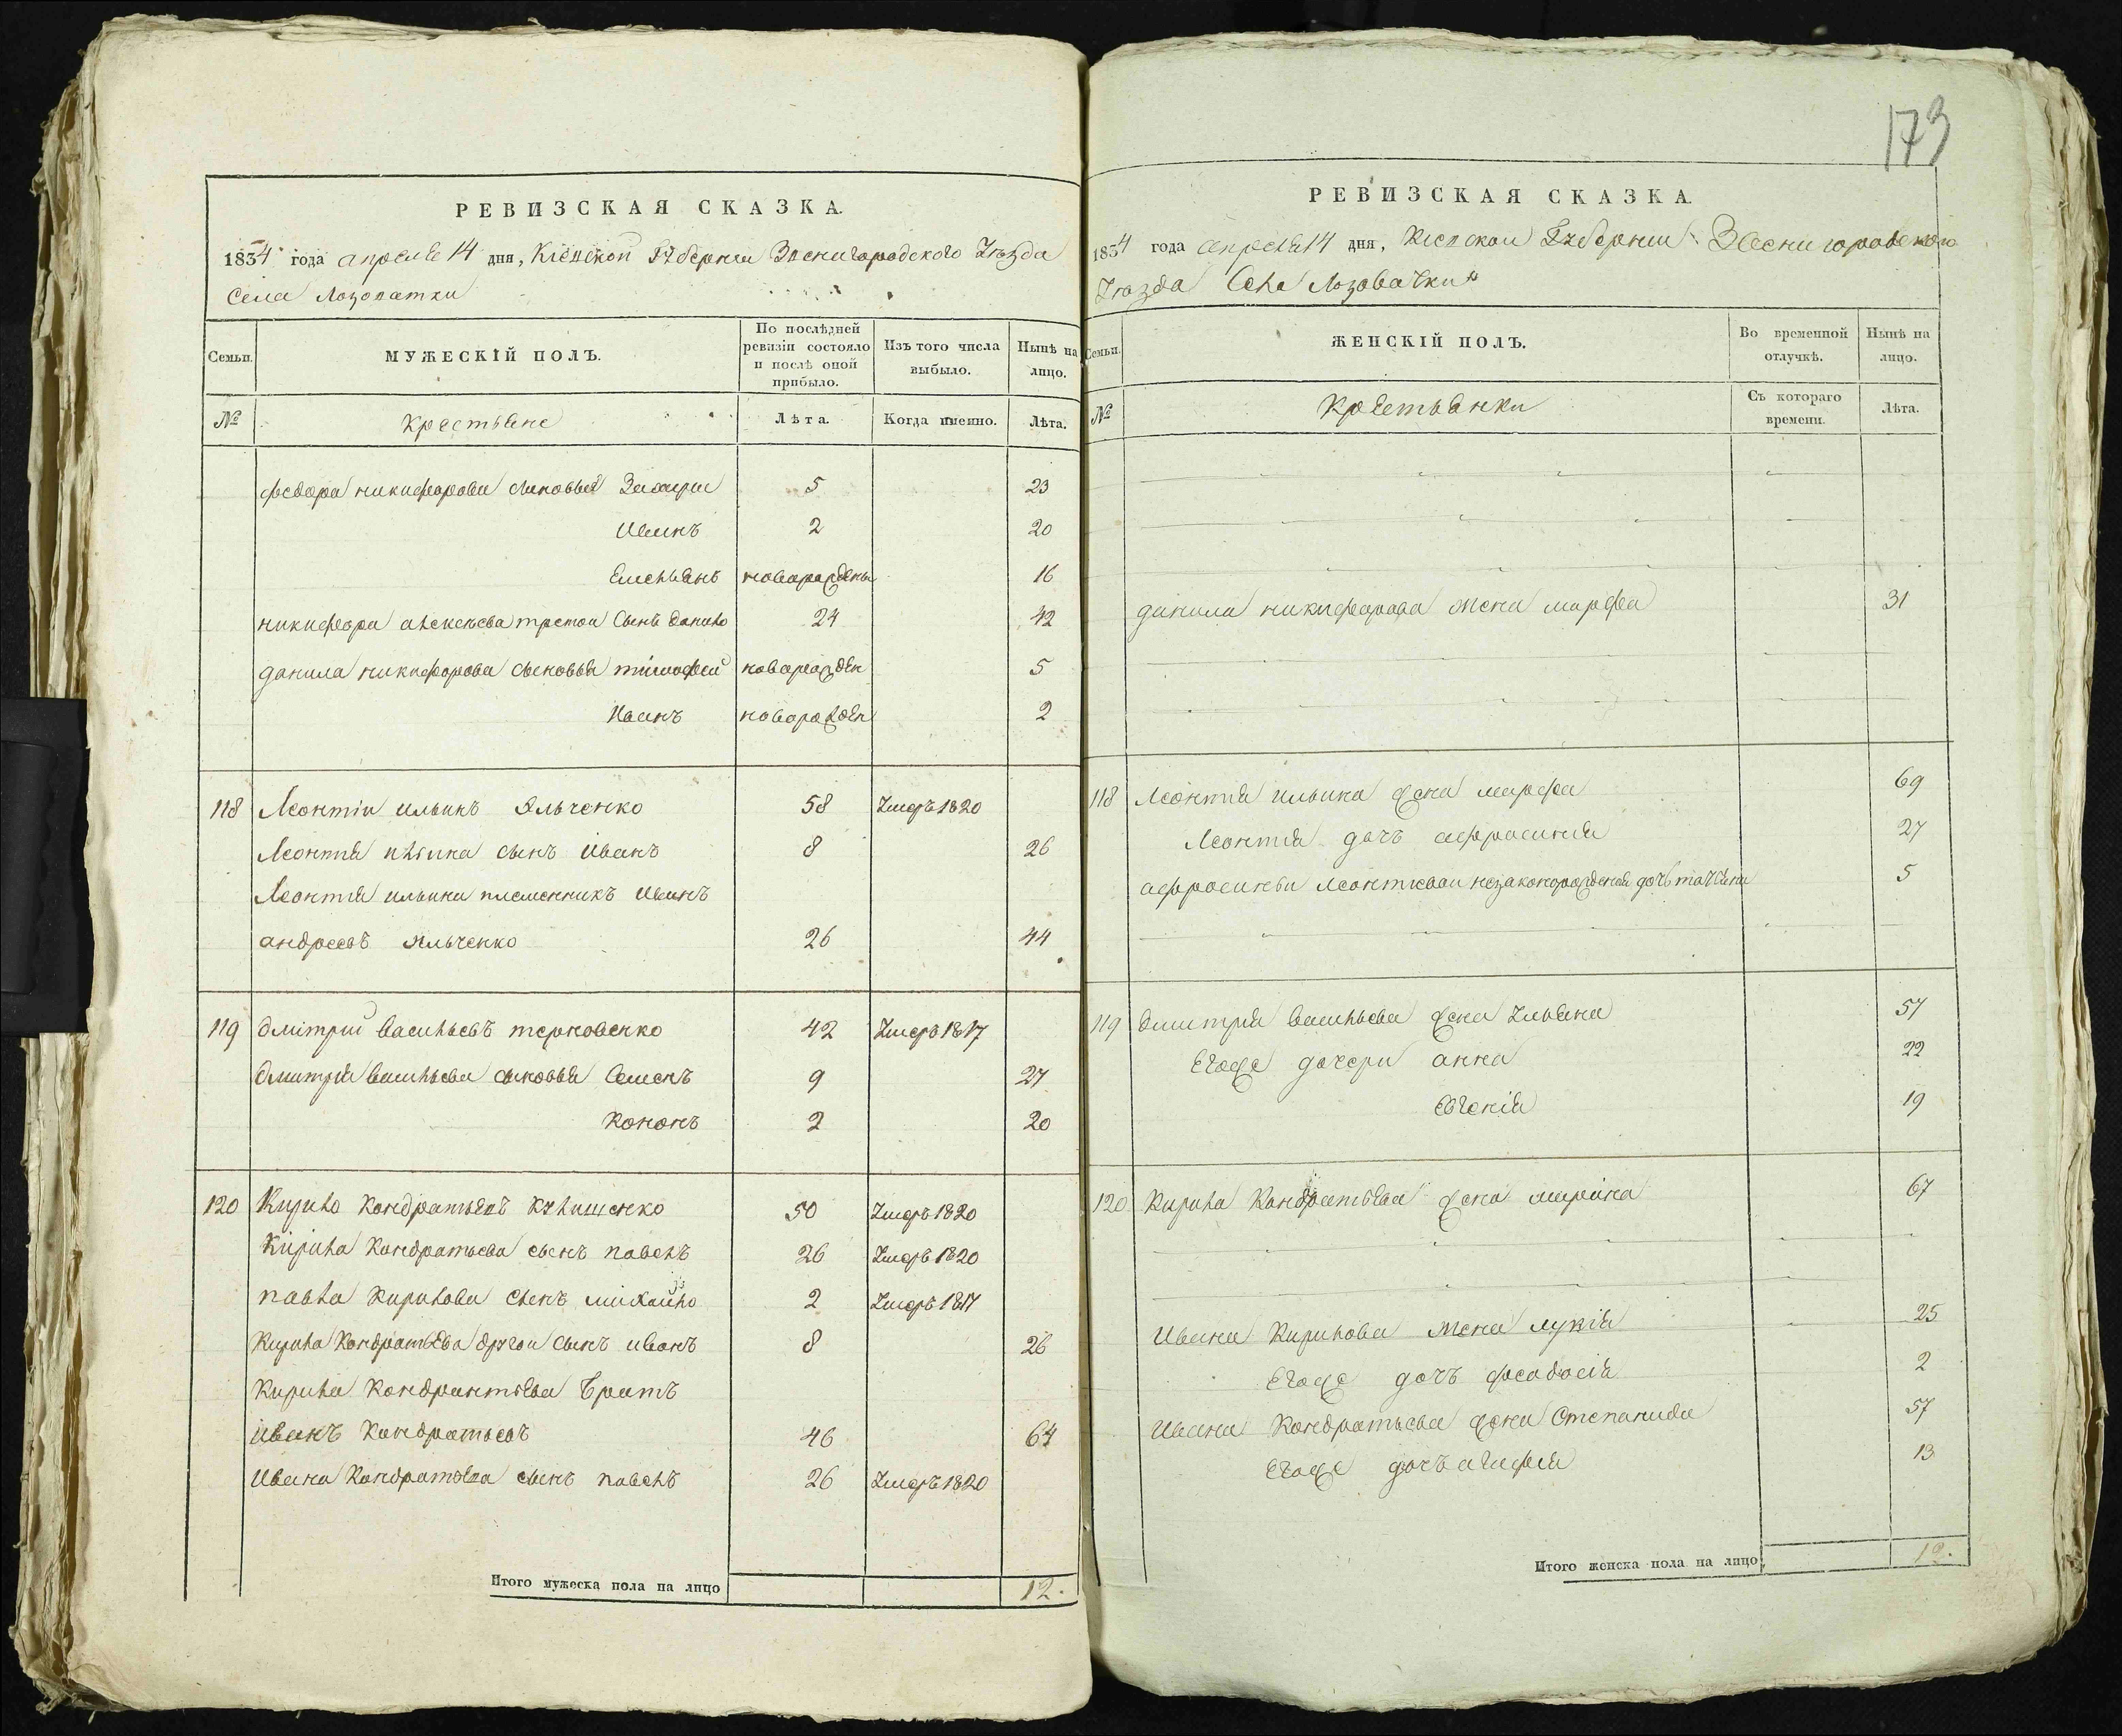 РЕВИЗСКАЯ СКАЗКА.
1834 года апреля 14 дня, Кіевской Губерніи Звенигородского Уѣзда
Села Лозоватки
Семьи. МУЖЕСКІЙ ПОЛЪ. По послѣдней ревизіи состояло и послѣ оной прибыло. Изъ того числа выбыло. Нынѣ на лицо.
№ Крестьяне Лѣта. Когда именно. Лѣта.
федора никифорова сыновья Захари 5 23
Иванъ 2 20
Емельянъ новорожденъ 16
никифора алексеева третои сынъ данило 24 42
данила никифорова сыновья тимофей новорожден 5
Иванъ новорожден 2
118 Леонтіи ильинъ Яльченко 58 Умеръ 1820
Леонтия ильина сынъ Иванъ 8 26
Леонтия ильина племенникъ Иванъ
андреевъ Яльченко 26 44
119 дмітрий васильевъ терновенко 42 Умеръ 1817
дмитрия васильева сыновья Семенъ 9 27
Кононъ 2 20
120 Кирило Кондратьевъ Кулишенко 50 Умеръ 1820
Кирила Кондратьева сынъ павелъ 26 Умеръ 1820
павла Кирилова сынъ михайло 2 Умеръ 1817
Кирила Кондратьева другои сынъ иванъ 8 26
Кирила Кондрантьева братъ
иванъ Кондратьевъ 46 64
Ивана Кондратьева сынъ павелъ 26 Умеръ 1820
Итого мужеска пола на лицо 12.
173
РЕВИЗСКАЯ СКАЗКА.
1834 года апреля 14 дня, Кіевскои Губерніи Звенигородского
Уезда Села Лозоватки
Семьи. ЖЕНСКІЙ ПОЛЪ. Во временной отлучкѣ. Нынѣ на лицо.
№ Крестьянки Съ котораго времени. Лѣта.
данила никифорова жена марфа 31
118 Леонтия ильина жена марфа 69
Леонтия дочь афросиния 27
афросиньи леонтиевои незаконорожденая дочь татьяна 5
119 дмитрия васильева жена Ульяна 57
Егоже дочери анна 22
Евгения 19
120 Кирила Кондратьева жена марина 67
Ивана Кирилова жена лукия 25
Егоже дочь феодосия 2
Ивана Кондратьева жена Степанида 57
Егоже дочь агафия 13
Итого женска пола на лицо, 12.